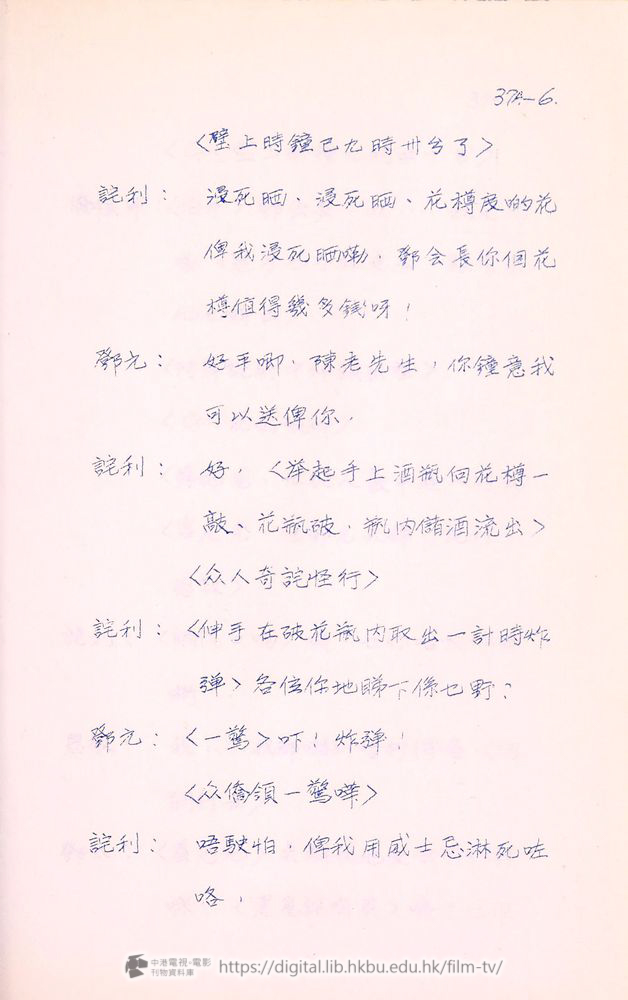 37A-6.
〈壁上時鐘已九時卅分了〉
詫利： 浸死晒、浸死晒、花樽度啲花
俾我浸死晒嘞．鄧会長你個花
樽值得幾多錢呀！
鄧允： 好平唧．陳老先生，你鐘意我
可以送俾你．
詫利： 好．〈举起手上酒瓶向花樽一
敲、花瓶破．瓶内儲酒流出〉
〈众人奇詫怪行〉
詫利：〈伸手在破花瓶内取出一計時炸
弹〉各位你地睇下係乜野？
鄧允：〈一驚〉吓！炸弹！
〈众僑領一驚嘩〉
詫利： 唔駛怕．俾我用威士忌淋死咗
咯．
中港電視·電影
刊物資料庫
https://digital.lib.hkbu.edu.hk/film-tv/